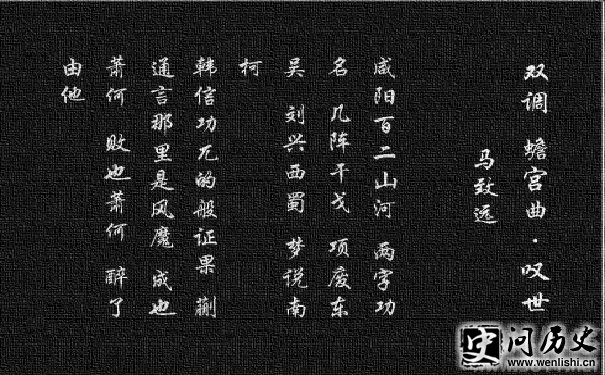 双调 蟾宫曲·叹世
马致远
咸阳百二山河 两字功
名 几阵干戈 项废东
吴 刘兴西蜀 梦说南
柯
韩信功兀的般证果 蒯
通言那里是风魔 成也
萧何 败也萧何 醉了
由他
史问历史
www.wenlishi.cn